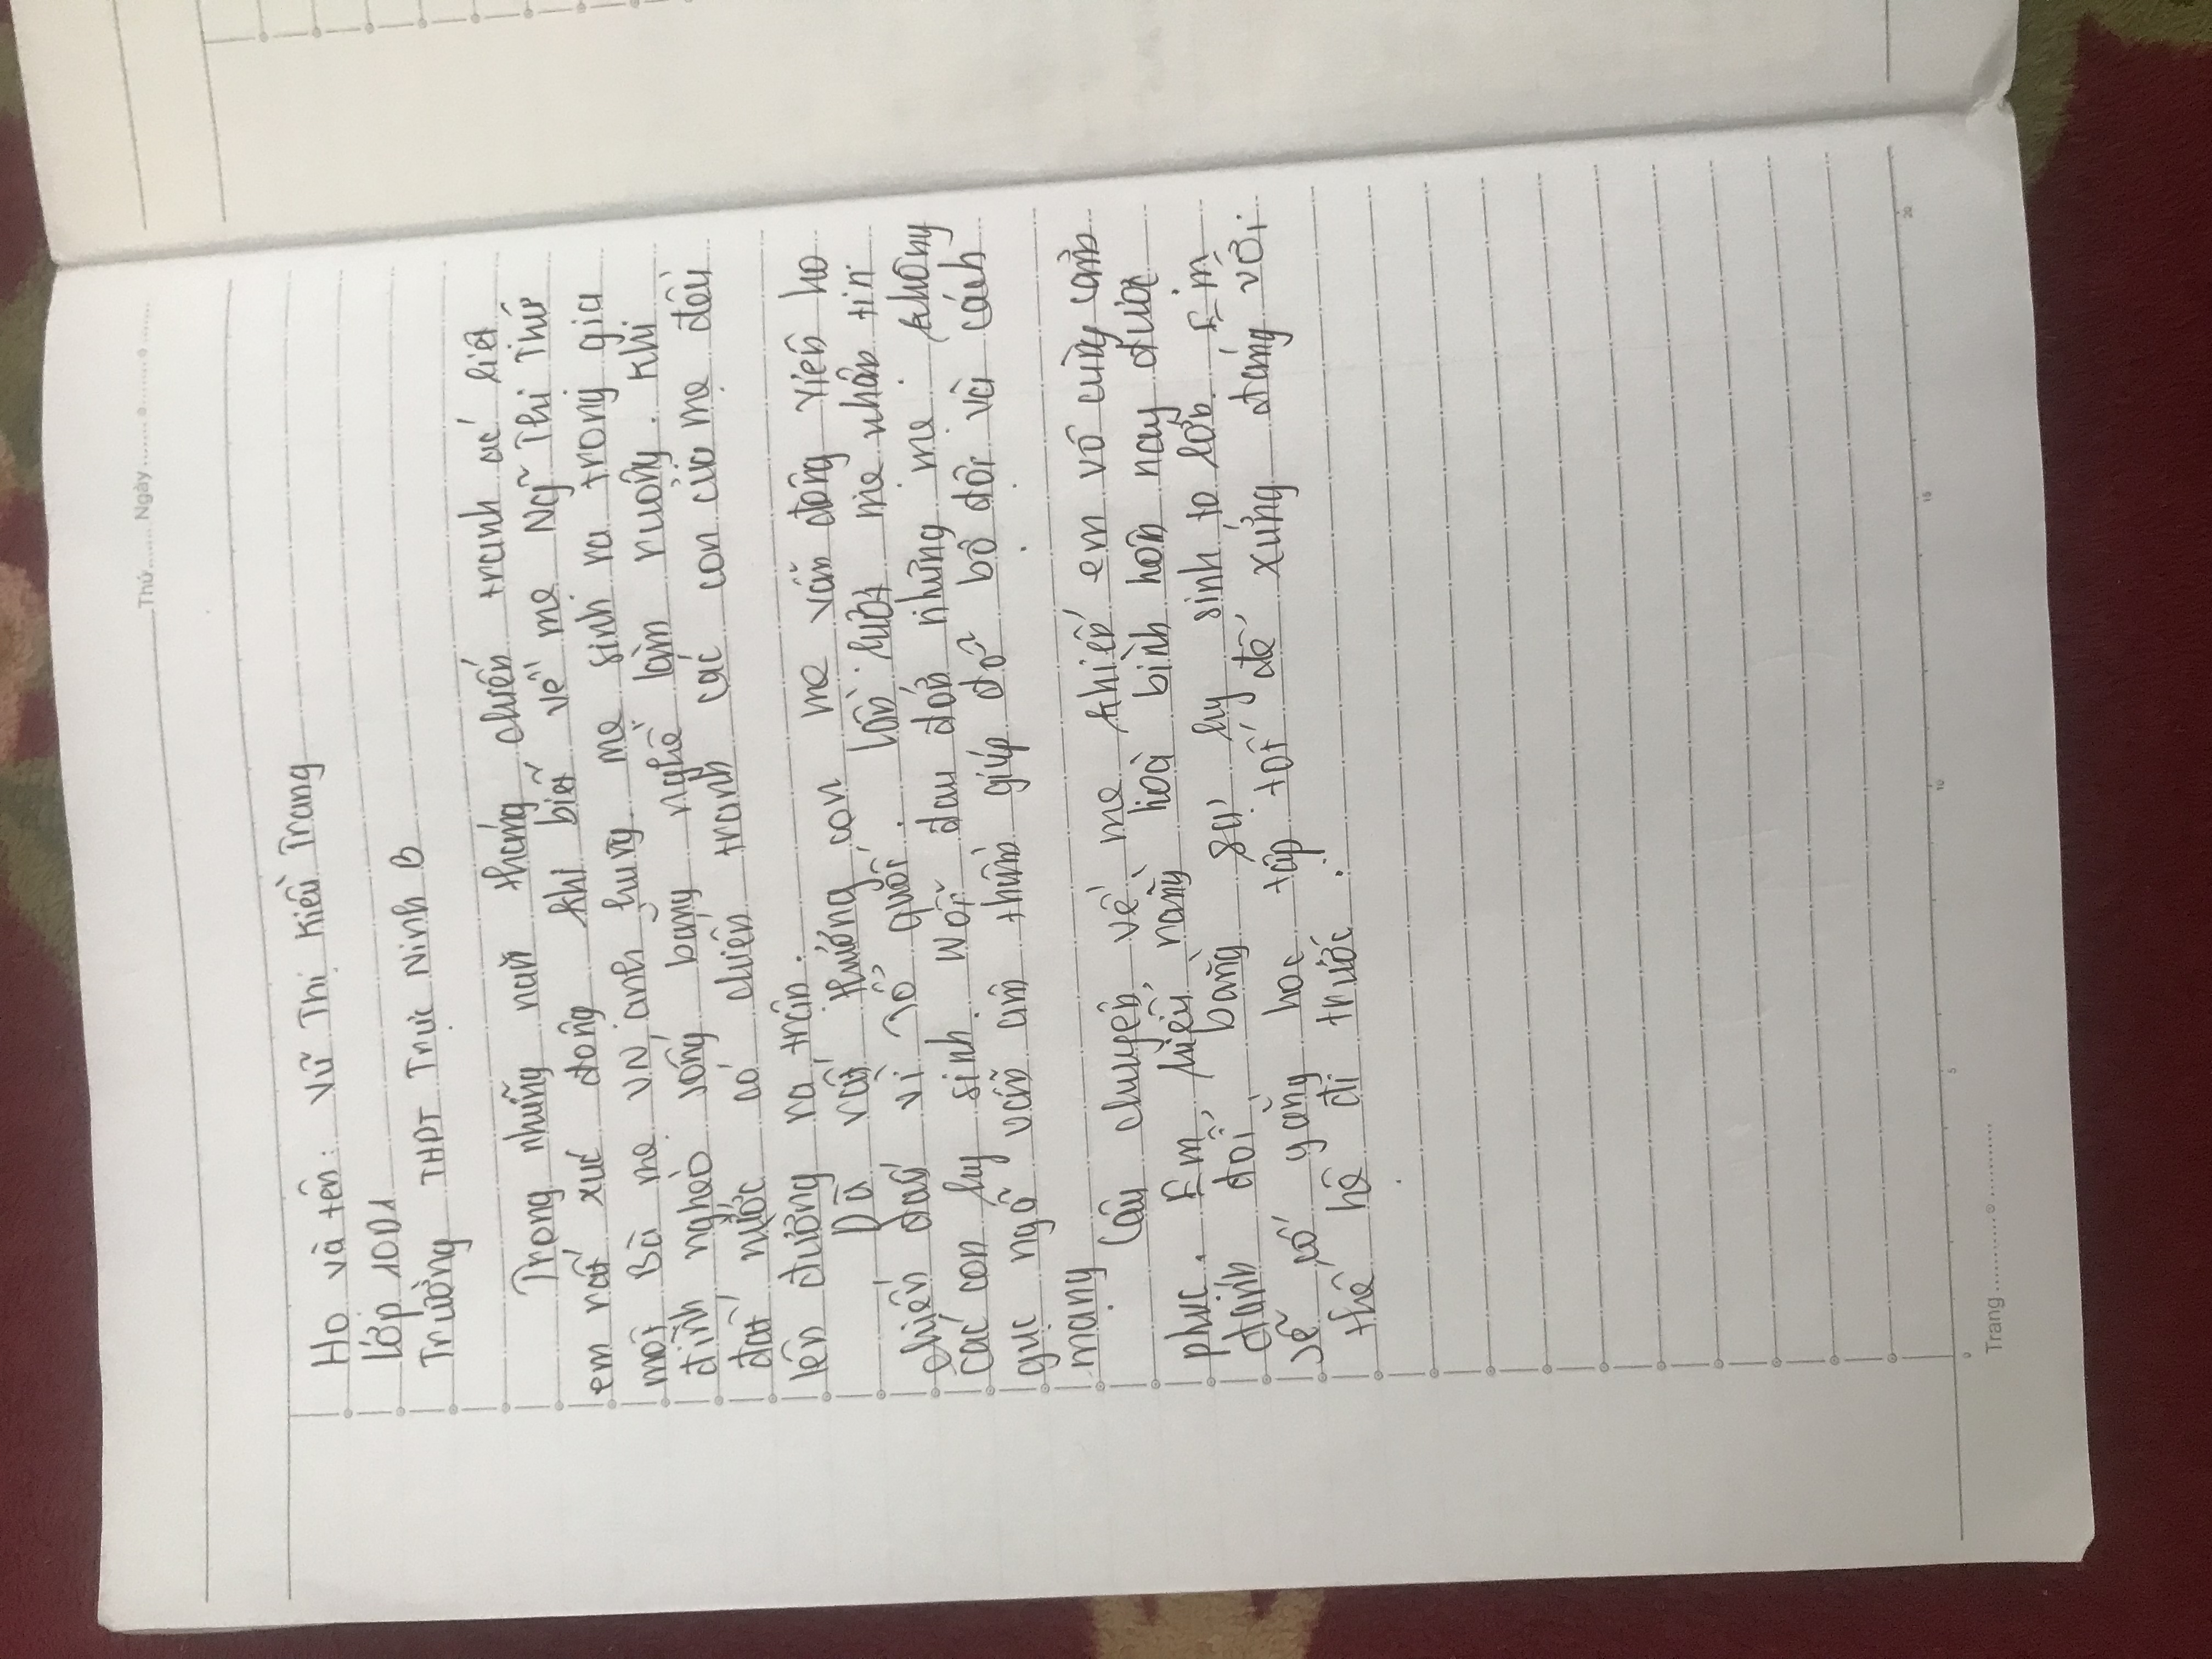 Thứ........ Ngày........
Họ và tên: Vũ Thị Kiều Trang
Lớp 10D1
Trường THPT Trực Ninh B
Trong những năm tháng chiến tranh ác liệt
em rất xúc động khi biết về mẹ Ngỹ Thị Thứ
một Bà mẹ VN anh hùng mẹ sinh ra trong gia
đình nghèo sống bang nghề làm ruộng. Khi
đất nước có chiến tranh các con của mẹ đều
lên đường ra trận.
Dù rất thương con mẹ vẫn động viên họ
chiến đấu vì Tổ quốc. Lần lượt mẹ nhận tin
các con hy sinh. Mỗi đau đớn nhưng mẹ không
gục ngã vẫn âm thầm giúp đỡ bộ đội và cách
mạng
Câu chuyện về mẹ khiến em vô cùng cảm
phục. Em hiểu rằng hoà bình hôm nay được
đánh đổi bằng sự hy sinh to lớn. Em
sẽ cố gắng học tập tốt để xứng đáng với
thế hệ đi trước.
0 5 10 15 20
Trang